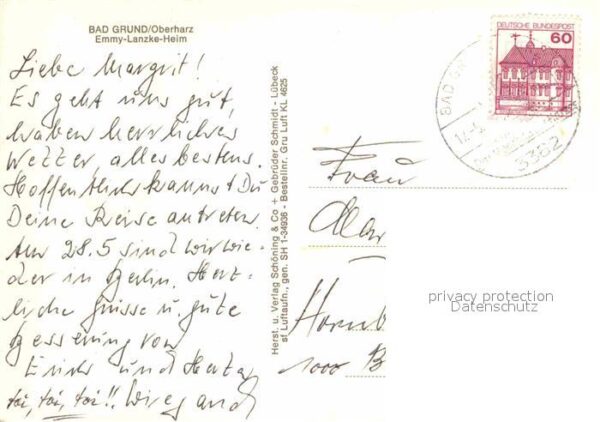 BAD GRUND/Oberharz
Emmy-Lanzke-Heim
Liebe Margrit!
Es geht uns gut,
haben herrliches
Wetter, alles bestens.
Hoffentlich kannst Du
Deine Reise antreten.
Am 28.5 sind wir wie-
der in Berlin. Herz-
liche Grüsse u. gute
Besserung von
Erika und Herta
toi, toi, toi!!
Herst. u. Verlag Schöning & Co + Gebrüder Schmidt - Lübeck
sf Luftaufn., gen. SH 1-34936 - Bestellnr. Gru Luft KL 4625
DEUTSCHE BUNDESPOST
60
BAD GR
3362
Frau
Mar
Hornb
1000 B
privacy protection
Datenschutz